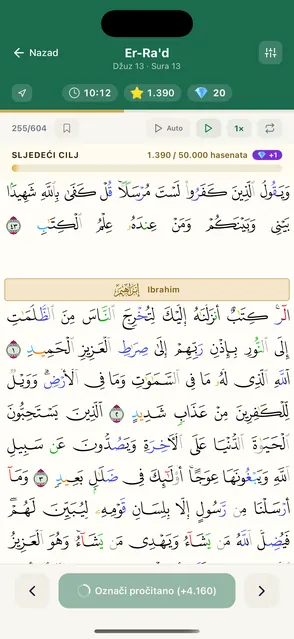 Nazad
Er-Ra'd
Džuz 13 · Sura 13
10:12
1.390
20
255/604
Auto
1×
SLJEDEĆI CILJ
1.390 / 50.000 hasenata
+1
وَيَقُولُ الَّذِينَ كَفَرُوا لَسْتَ مُرْسَلًا قُلْ كَفَىٰ بِاللَّهِ شَهِيدًا
بَيْنِي وَبَيْنَكُمْ وَمَنْ عِندَهُ عِلْمُ الْكِتَابِ ٤٣
إبراهيم Ibrahim
الٓر كِتَابٌ أَنزَلْنَاهُ إِلَيْكَ لِتُخْرِجَ النَّاسَ مِنَ الظُّلُمَاتِ
إِلَى النُّورِ بِإِذْنِ رَبِّهِمْ إِلَىٰ صِرَاطِ الْعَزِيزِ الْحَمِيدِ ١
اللَّهِ الَّذِي لَهُ مَا فِي السَّمَاوَاتِ وَمَا فِي الْأَرْضِ ۗ وَوَيْلٌ
لِّلْكَافِرِينَ مِنْ عَذَابٍ شَدِيدٍ ٢ الَّذِينَ يَسْتَحِبُّونَ
الْحَيَاةَ الدُّنْيَا عَلَى الْآخِرَةِ وَيَصُدُّونَ عَن سَبِيلِ
اللَّهِ وَيَبْغُونَهَا عِوَجًا أُولَٰئِكَ فِي ضَلَالٍ بَعِيدٍ ٣ وَمَا
أَرْسَلْنَا مِن رَّسُولٍ إِلَّا بِلِسَانِ قَوْمِهِ لِيُبَيِّنَ لَهُمْ
فَيُضِلُّ اللَّهُ مَن يَشَاءُ وَيَهْدِي مَن يَشَاءُ وَهُوَ الْعَزِيزُ
Označi pročitano (+4.160)